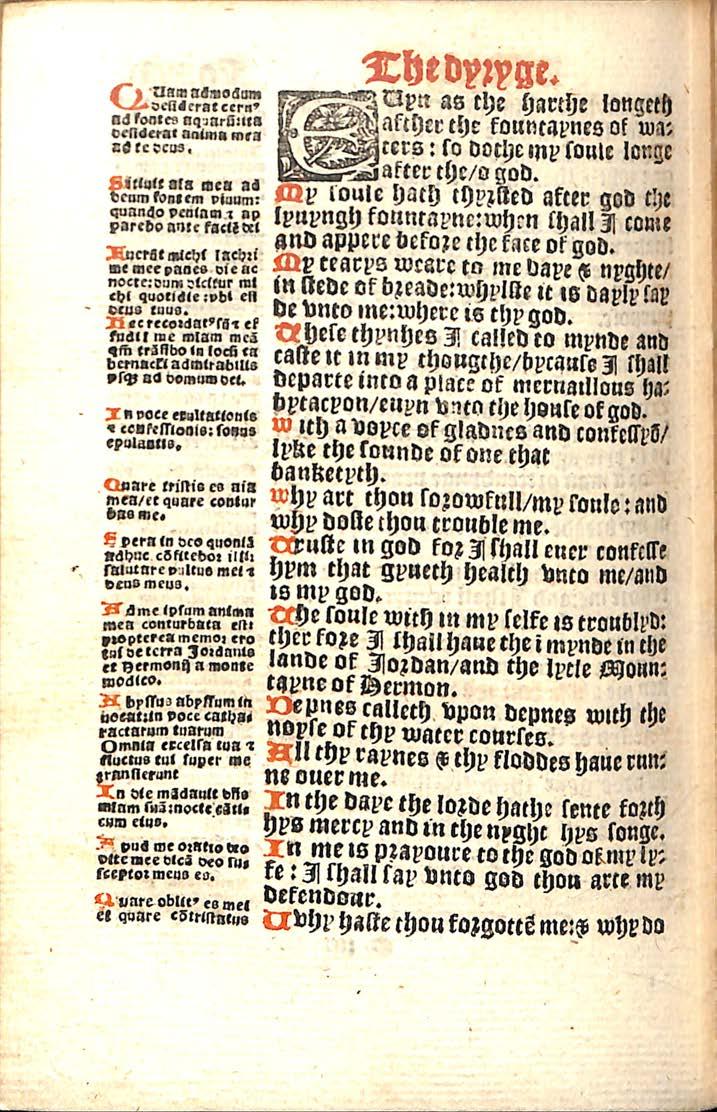 The dyryge.
QUam admodum
desiderat ceruꝰ
ad fontes aquarū: ita
desiderat anima mea
ad te deus.
Sitiuit aīa mea ad
deum fontem viuum:
quando veniam ⁊ ap
parebo ante faciē dei
Fuerūt michi lachri
me mee panes die ac
nocte: dum dicitur mi
chi quotidie: vbi est
deus tuus.
Hec recordatꝰ sū ⁊ ef
fudi ī me aīam meā
qm̄ trāsibo in locū ta
bernacli admirabilis
vsqꝫ ad domum dei.
In voce exultationis
⁊ confessionis: sonus
epulantis.
Quare tristis es aīa
mea/et quare contur
bas me.
Spera in deo quoniā
adhuc cōfitebor illi:
salutare vultus mei ⁊
deus meus.
Ad me ipsum anima
mea conturbata est:
propterea memor ero
tui de terra Jordanis
et Hermonij a monte
modico.
Abyssus abyssum in
uocat: in voce cathar
ractarum tuarum
Omnia excelsa tua ⁊
fluctus tui super me
transierunt
In die mādauit dn̄s
miam suā: nocte cātic
cum eius.
Apud me oratio deo
vite mee dicā deo sus
sceptor meus es.
Quare oblitꝰ es mei
et quare cōtristatus
EUyn as the harthe longeth
afther the fountaynes of wa:
ters: so dothe my soule longe
after the/o god.
My soule hath thyrsted after god the
lyuyngh fountayne: when shall I come
and appere before the face of god.
My tearys weare to me daye & nyghte/
in stede of breade: whylste it is dayly say
de vnto me: where is thy god.
These thynhes I called to mynde and
caste it in my thougthe/bycause I shall
departe into a place of meruaillous ha:
bytacyon/euyn vnto the house of god.
with a voyce of gladnes and confessyō/
lyke the sounde of one that
banketyth.
why art thou sorowfull/my soule: and
why doste thou trouble me.
Truste in god for I shall euer confesse
hym that gyueth health vnto me/and
is my god.
The soule with in my selfe is troublyd:
ther fore I shall haue the i mynde in the
lande of Jordan/and the lytle Moun:
tayne of Hermon.
Depnes calleth vpon depnes with the
noyse of thy water courses.
All thy raynes & thy floddes haue run:
ne ouer me.
In the daye the lorde hathe sente forth
hys mercy and in the nyght hys songe.
In me is prayoure to the god of my ly:
fe: I shall say vnto god thou arte my
defendour.
Uvhy haste thou forgottē me: & why do